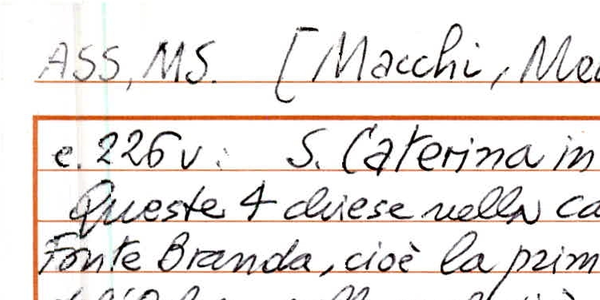 ASS, MS. [Macchi, Me
c. 226v. S. Caterina in
Queste 4 chiese nella ca
Fonte Branda, cioè la prim